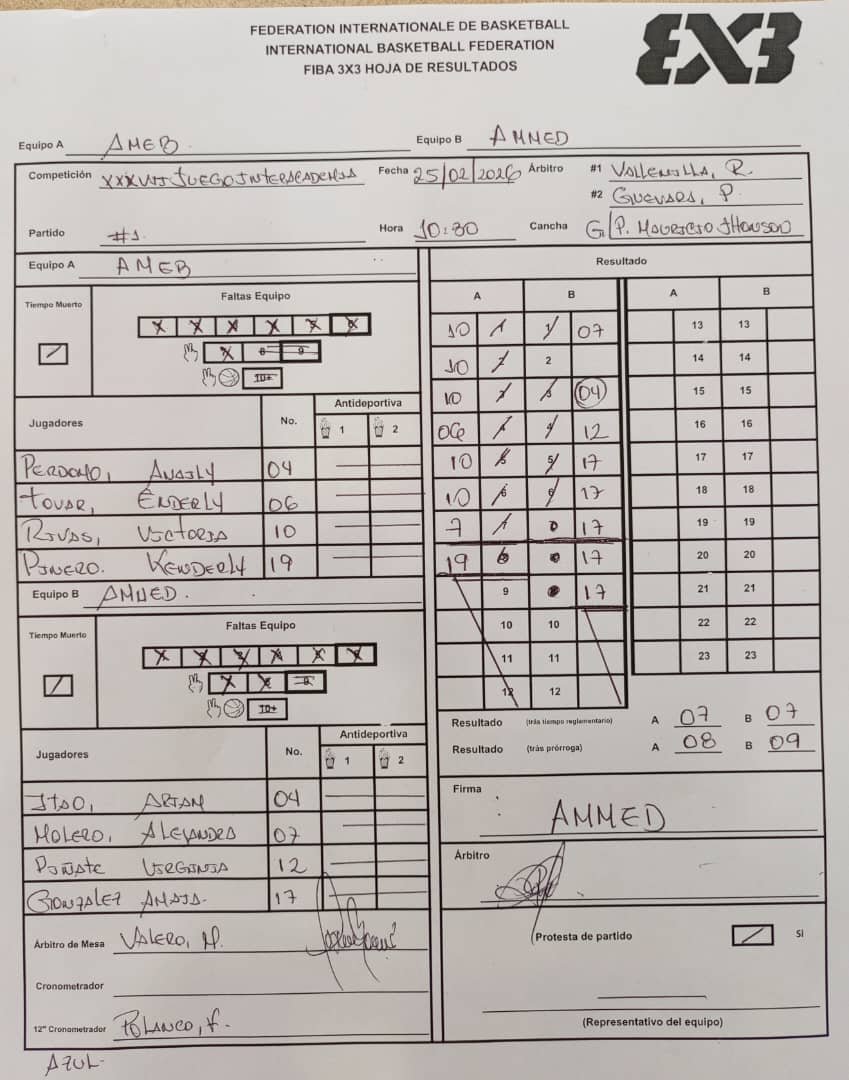 FEDERATION INTERNATIONALE DE BASKETBALL
INTERNATIONAL BASKETBALL FEDERATION
FIBA 3X3 HOJA DE RESULTADOS
3X3
Equipo A AMEB.
Equipo B AMMED
Competición XXXVII JUEGO INTERACADEMIA
Fecha 25/02/2026
Árbitro #1 VALLENILLA, R.
#2 GUEVARA, P.
Partido #1.
Hora 10:30
Cancha G/P. MAURICIO JHONSON
Equipo A AMEB
Tiempo Muerto
Faltas Equipo
10+
Antideportiva
Jugadores No. 1 2
PERDOMO, ANAILY 04
TOVAR, ENDERLY 06
RIVAS, VICTORIA 10
PINERO. KENDERLY 19
Equipo B AMMED.
Tiempo Muerto
Faltas Equipo
10+
Antideportiva
Jugadores No. 1 2
ITAO, ARIAM 04
MOLERO, ALEJANDRA 07
PIÑATE VIRGINIA 12
GONZALEZ AMAIA. 17
Árbitro de Mesa VALERO, M.
Cronometrador
12" Cronometrador POLANCO, F.
AZUL-
Resultado
A B A B
10 1 1 07 13 13
10 2 2 14 14
10 3 3 04 15 15
06 4 4 12 16 16
10 5 5 17 17 17
10 6 6 17 18 18
7 17 19 19
19 17 20 20
9 17 21 21
10 10 22 22
11 11 23 23
12 12
Resultado (trás tiempo reglementario) A 07 B 07
Resultado (trás prórroga) A 08 B 09
Firma
AMMED
Árbitro
(Protesta de partido SI
(Representivo del equipo)